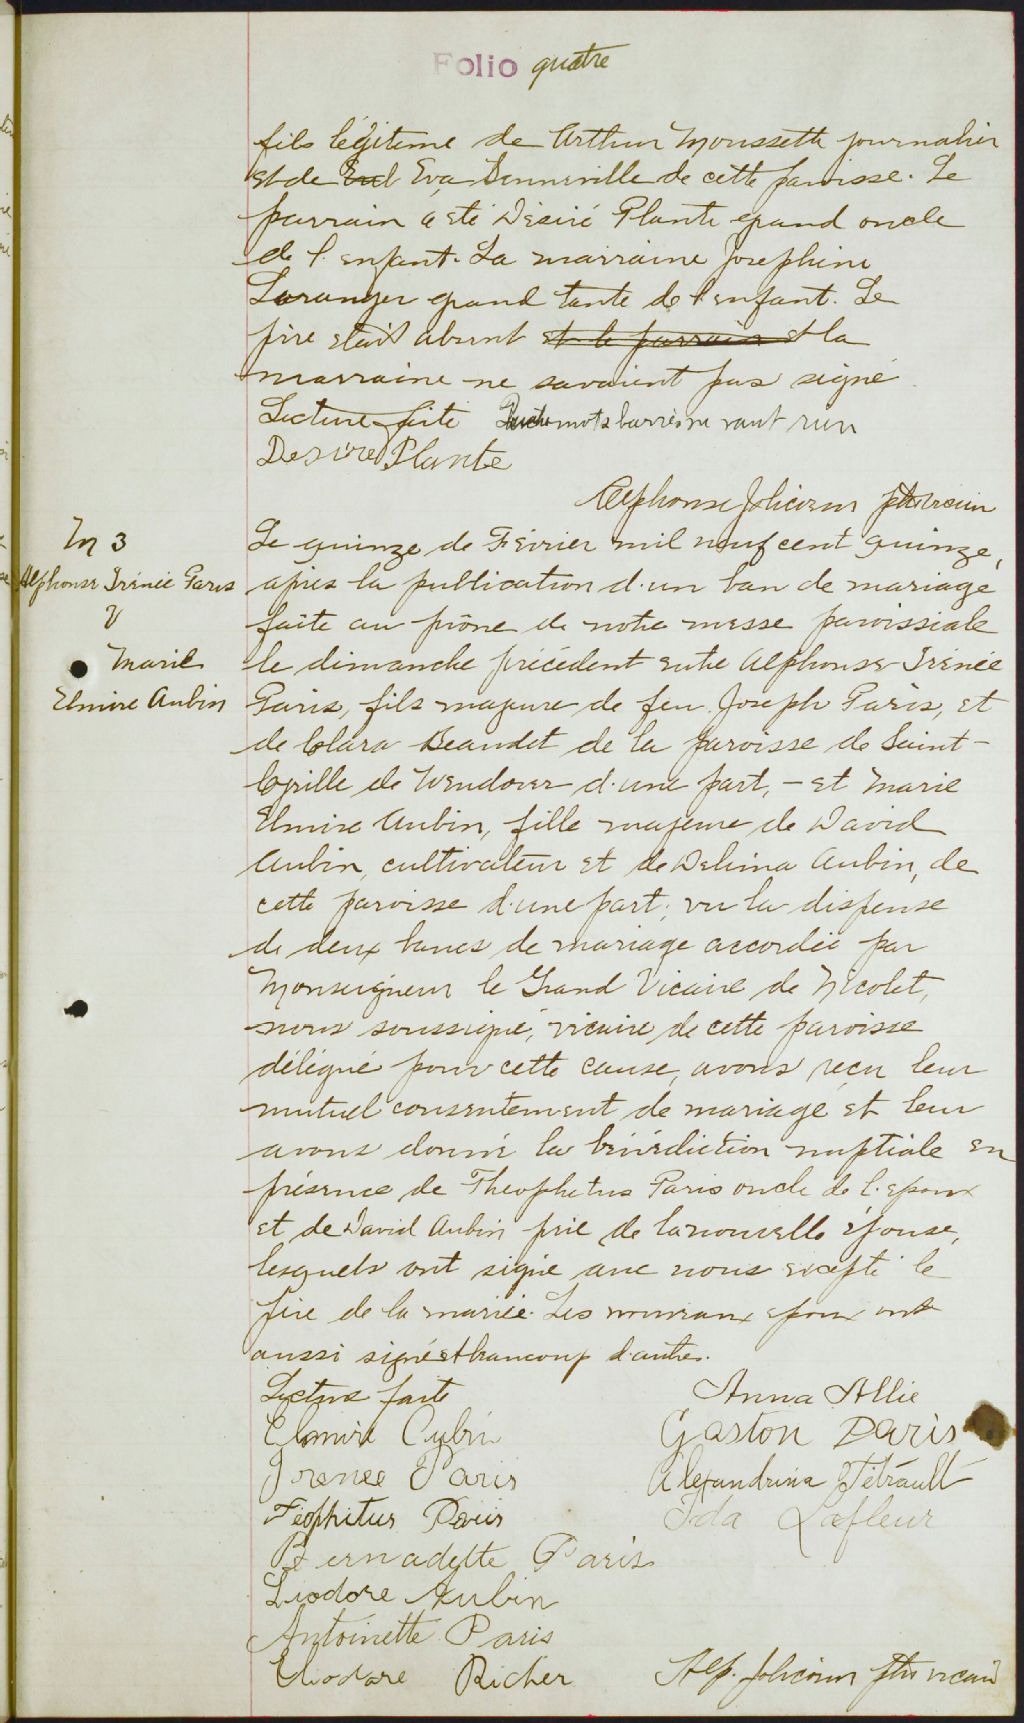 Folio quatre
fils légitime de Arthur Moussette journalier
et de Eva Senneville de cette paroisse. Le
parrain a été Désiré Plante grand oncle
de l'enfant. La marraine Josephine
Loranger grand tante de l'enfant. Le
père était absent et le parrain et la
marraine ne savaient pas signé
Lecture faite mots barrés ne vaut rien
Desire Plante
Alphonse Jolicoeur ptre vicaire
M 3
Alphonse Irénée Paris
&
Marie
Elmire Aubin
Le quinze de Février mil neuf cent quinze,
après la publication d'un ban de mariage
faite au prône de notre messe paroissiale
le dimanche précédent entre Alphonse Irénée
Paris, fils majeure de feu Joseph Paris, et
de Clara Beaudet de la paroisse de Saint-
Cyrille de Wendover d'une part, - et Marie
Elmire Aubin, fille majeure de David
Aubin, cultivateur et de Delima Aubin, de
cette paroisse d'une part; vu la dispense
de deux bancs de mariage accordée par
Monseigneur le Grand Vicaire de Nicolet,
nous soussigné, vicaire de cette paroisse
délégué pour cette cause, avons reçu leur
mutuel consentement de mariage et leur
avons donné la bénédiction nuptiale en
présence de Theophetus Paris oncle de l'epoux
et de David Aubin père de la nouvelle épouse,
lesquels ont signé avec nous excepté le
père de la mariée. Les nouveaux epoux ont
aussi signés et beaucoup d'autres.
Lecture faite
Elmire Aubin
Irenee Paris
Féophitus Paris
Bernadette Paris
Liodore Aubin
Antoinette Paris
Eliodore Richer
Anna Allie
Gaston Paris
Alexandrina Tétrault
Ida Lafleur
Alp. Jolicoeur ptre vicaire